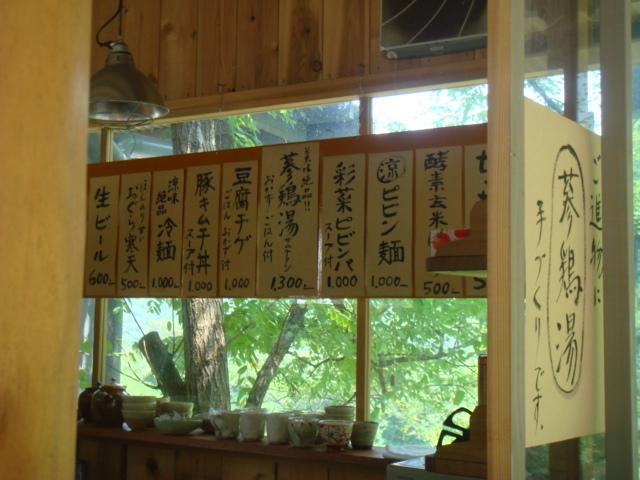 生ビール
600
おぐら寒天
500
涼味
絶品
冷麺
1.000
豚キムチ丼
スープ付
1.000
豆腐チゲ
ごはん おかず付
1.000
美味絶品!!
蔘鶏湯
サムゲタン
おかず・ごはん付
1.300
彩菜ビビンバ
スープ付
1.000
涼
ビビン麺
1.000
酵素玄米
500
ご進物に
蔘鶏湯
手づくりです。